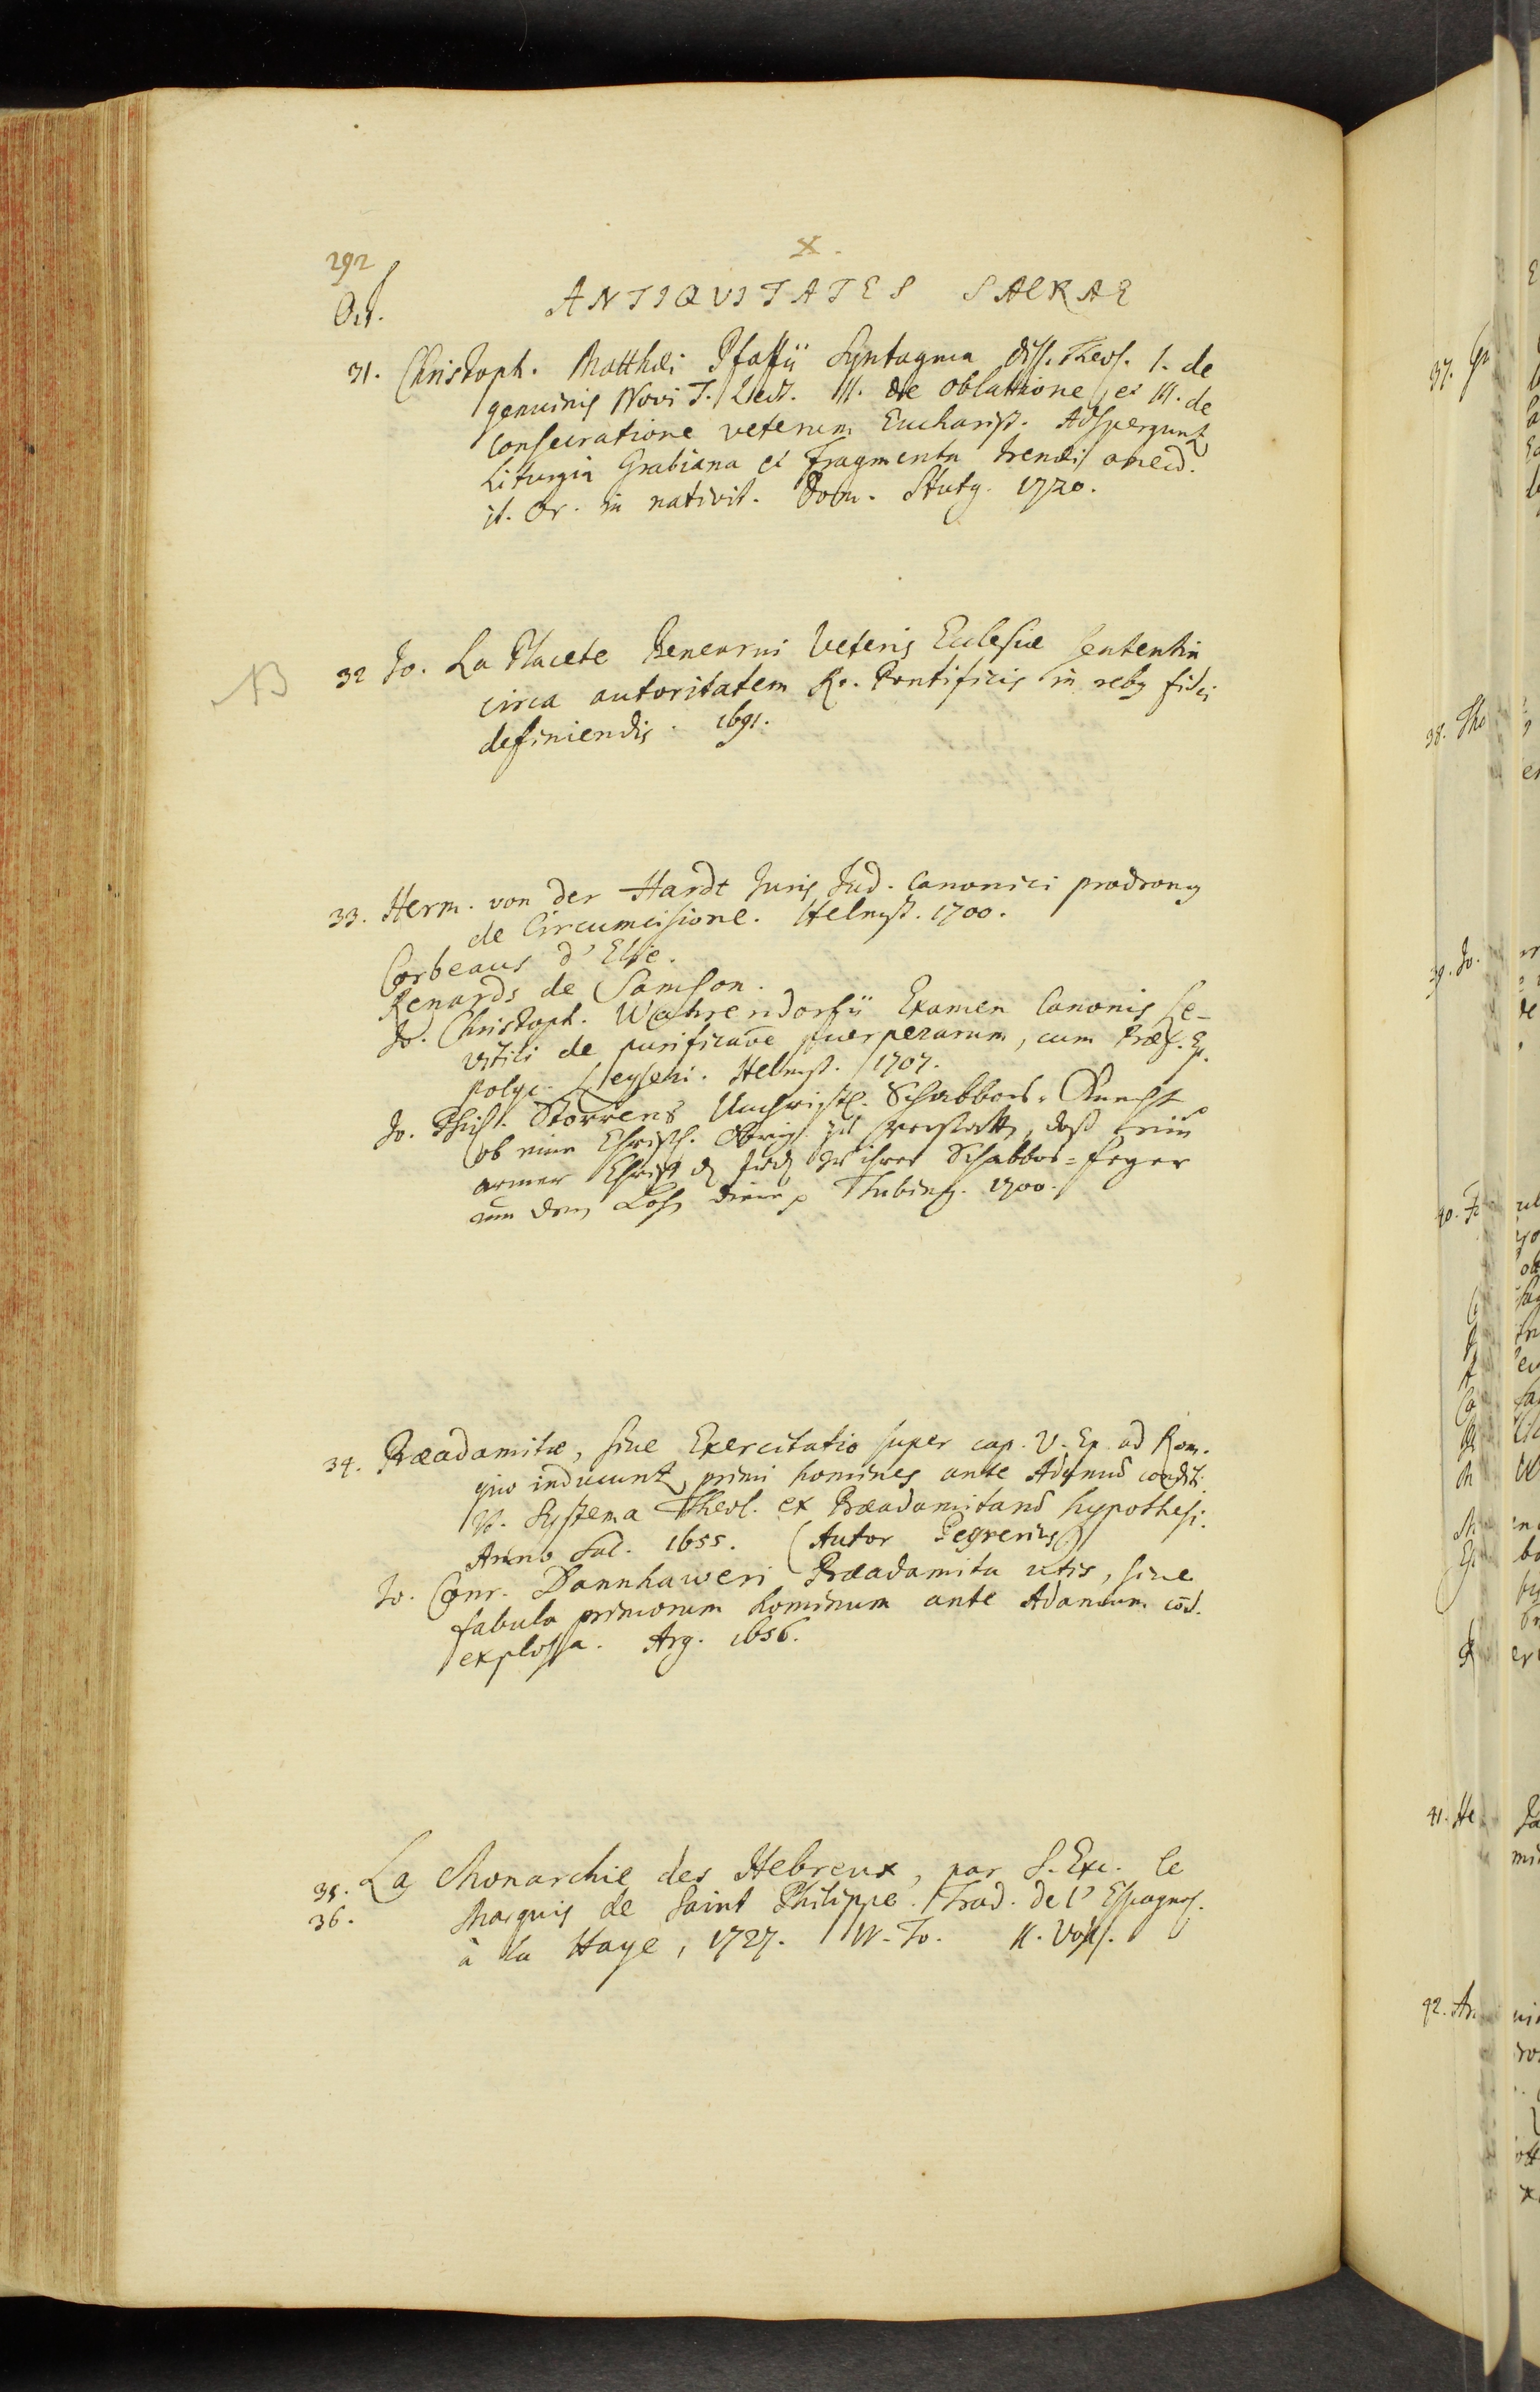 292
X.
Oct.
ANTIQVITATES SACRAE
31. Christoph. Matthæi Pfaffii Syntagma Diss. Theol. I. de
genuinis Novi T. Lect. II. de oblatione, et III. de
consecratione veterum Eucharist. Adsperguntr
Liturgia Grabiana et Fragmenta Irenæi anecd.
it. Or. in nativit. Dom. Stutg. 1720.
NB
32 Jo. La Placete Benearni Veteris Ecclesiæ sententia
circa autoritatem Ro. Pontificis in rebg fidei
definiendis. 1691.
33. Herm. von der Hardt Juris Jud. Canonici prodromg
de Circumcisione. Helmst. 1700.
Corbeaus d'Elie.
Renards de Samson.
Jo. Christoph. Wahrendorfii Examen Canonis Le-
vitici de purificaōe puerperarum, cum Præf. Ep.
Polyc. Leyseri. Helmst. 1707.
Jo. Phil. Storrens Unchristl. Schabbas-Knecht
ob eine Christl. Obrigk. zu verstatten, daß
armer Christ d. Jud. zu ihrer Schabbas-feger
um den Lohn diene p Tubing. 1700.
34. Præadamitæ, sive Exercitatio super cap. V. Ep. ad Rom.
quo inducuntr primi homines ante Adamum conditi.
It. Systema Theol. ex Præadamitarum hypothesi.
Anno Sal. 1655. (Autor Peyrerius)
Jo. Conr. Dannhaweri Præadamita utis, sive
fabula primorum hominum ante Adamum cōd.
explosa. Arg. 1656.
35. La Monarchie des Hebreux, par S. Exc. le
36. Marquis de Saint Philippe. Trad. de l'Espagnol.
à la Haye, 1727. IV. To. II. Voll.
37.
38. Tho
39. Jo.
40.
41. He
42.